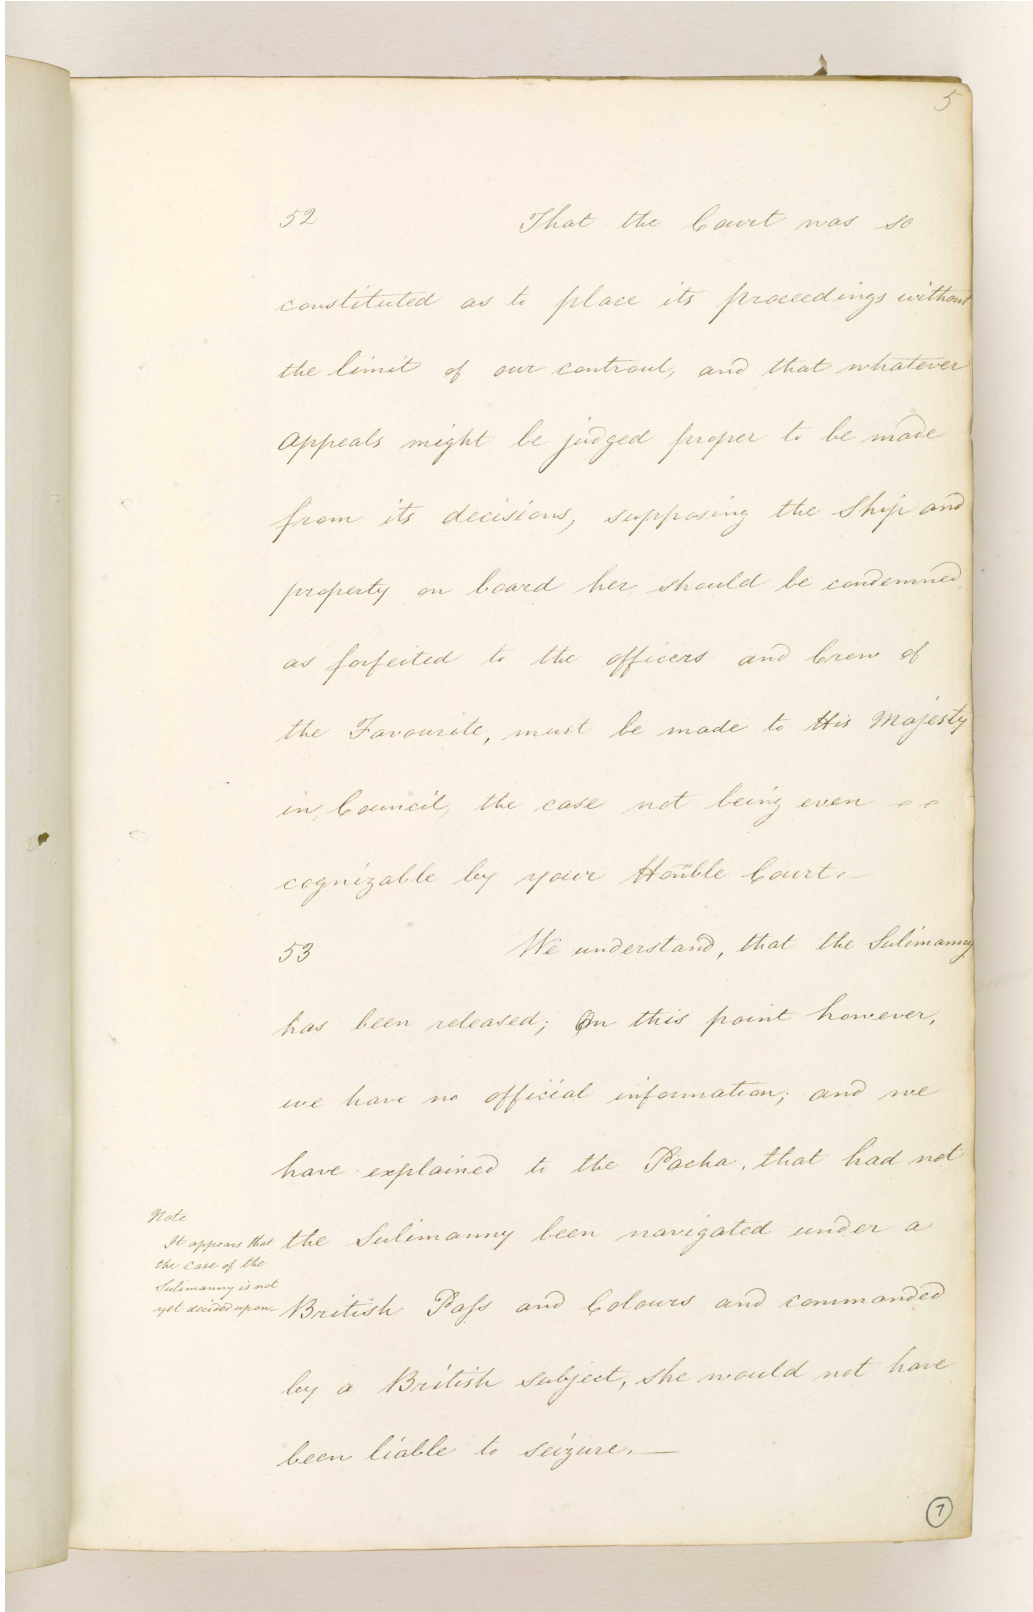 5
52 That the Court was so
constituted as to place its proceedings without
the limit of our controul, and that whatever
Appeals might be judged proper to be made
from its decisions, supposing the Ship and
property on board her should be condemned
as forfeited to the officers and Crew of
the Favourite, must be made to His Majesty
in Council, the case not being even
cognizable by your Honble Court.—
53 We understand, that the Sulimanny
has been released; On this point however,
we have no official information; and we
have explained to the Pacha, that had not
the Sulimanny been navigated under a
British Pass and Colours and commanded
by a British subject, she would not have
been liable to seizure.—
Note
It appears that
the Case of the
Sulimanny is not
yet decided upon
7